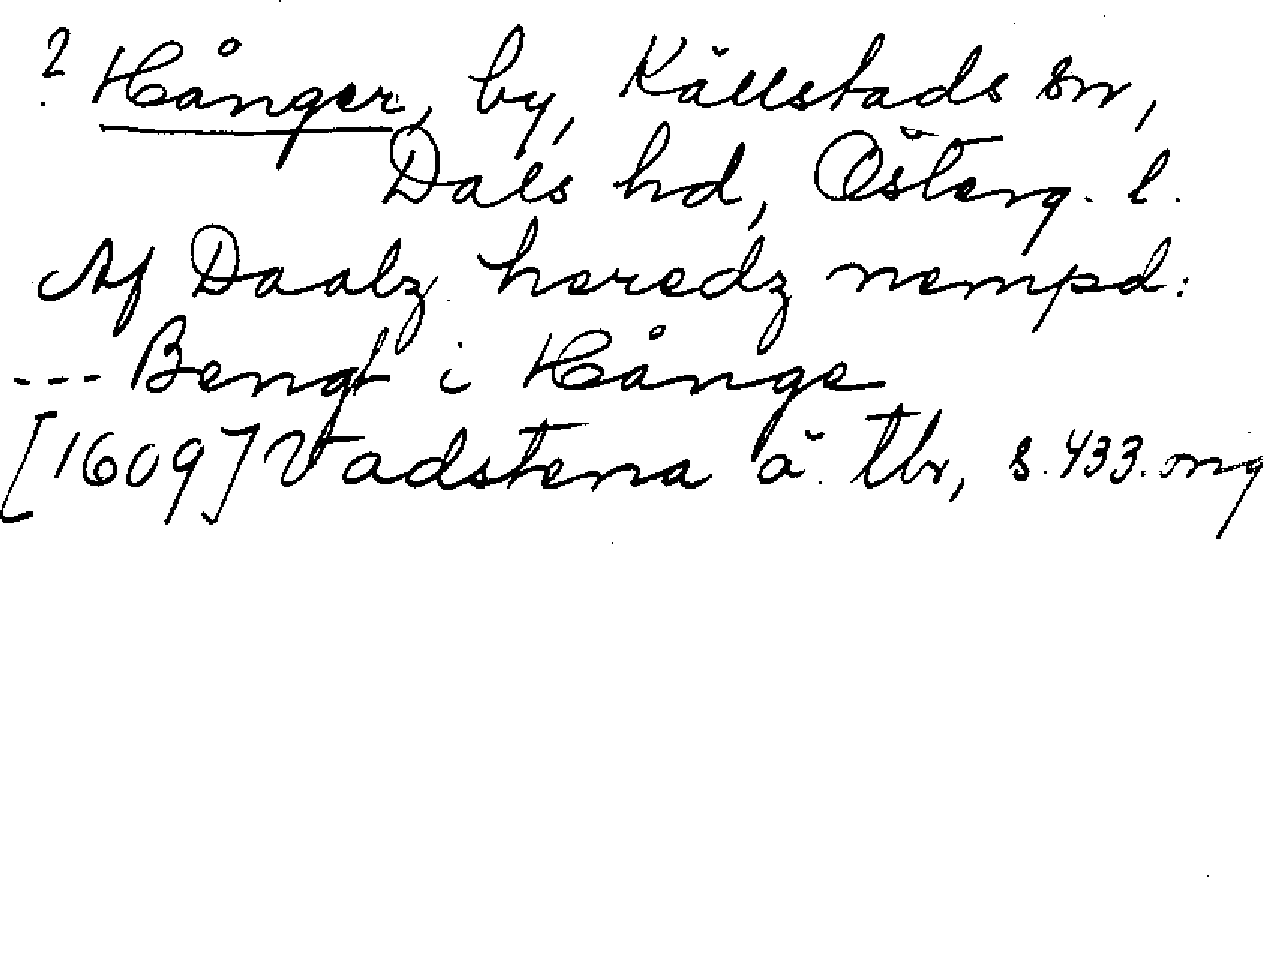 ? Hånger, by, Källstads sn,
Dals hd, Österg. l.
Af Daalz heredz nempd:
--- Bengt i Hånge
[1609] Vadstena ä. tbr, s. 433. mg